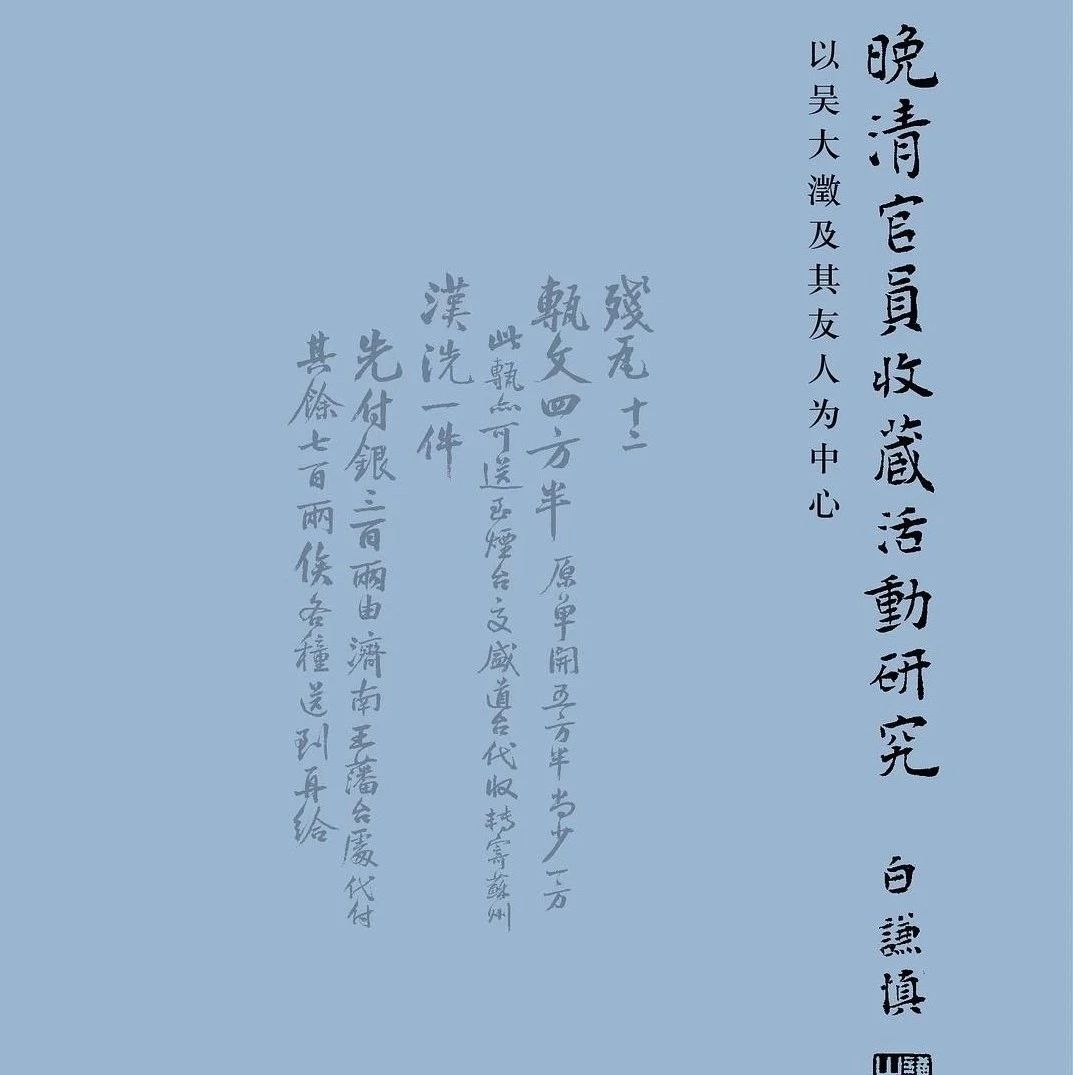 晚清官員收蔵活動研究
白謙慎
以吴大澂及其友人为中心
殘瓦十二
甎文四方半 原單開五方半尚少一方
此甎亦可送至煙台交盛道台代收轉寄蘇州
漢洗一件
先付銀三百兩由濟南王藩台處代付
其餘七百兩俟各種送到再給